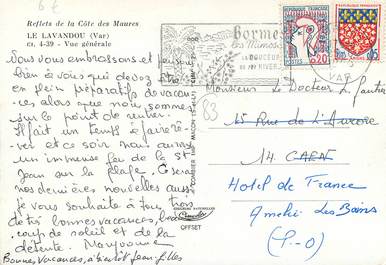 6€
Reflets de la Côte des Maures
LE LAVANDOU (Var)
cs. 4-39 - Vue générale
Nous vous embrassons et pensons
bien à vous qui devez être
en plein préparatifs de vacan-
ces alors que nous sommes
sur le point de rentrer.
Il fait un temps à
ver et ce soir nous aurons
un immense feu de la St
Jean sur la plage. Ce sera
nos dernières nouvelles aussi
je vous souhaite à tous, très
très bonnes vacances, beau-
coup de soleil et de la
détente. Maryvonne
Bonnes Vacances, à bientôt Jean-Gilles
COMBIER IMP. MACON
OFFSET
Bormes
les Mimosas
LA DOUCEUR
DE L'HIVER
VAR
POSTES
0,20
0,05
83
Monsieur Le Docteur L. Gautier
15 Rue de l'Aurore
14 CAEN
Hotel de France
Amélie Les Bains
(P-O)